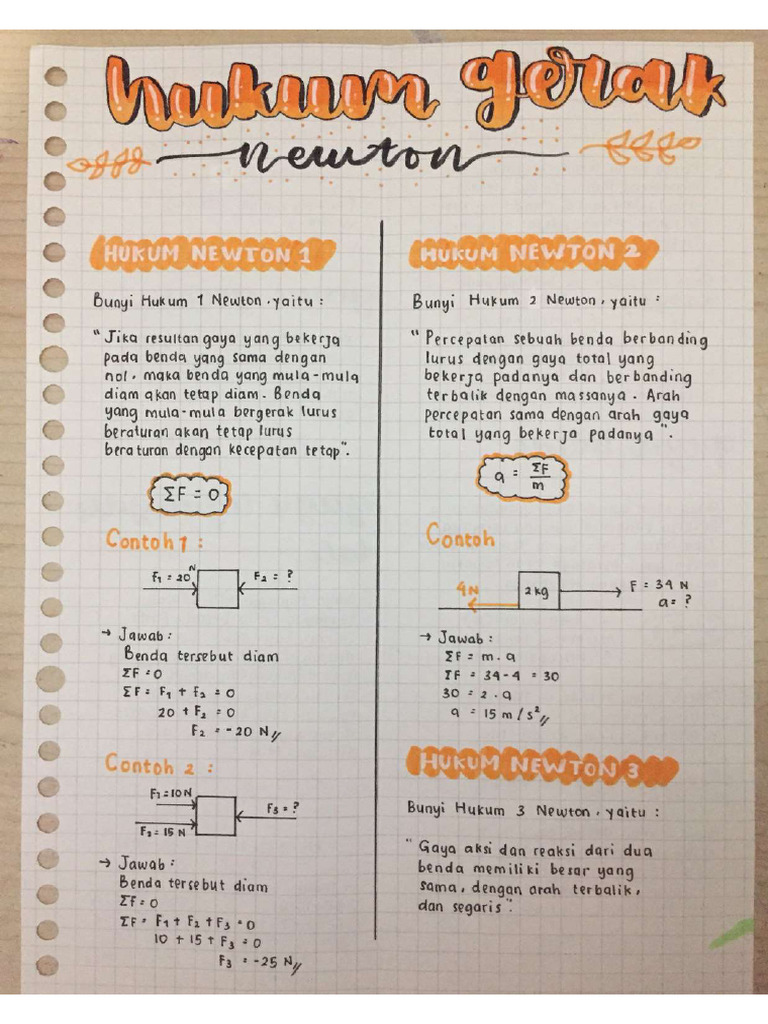 hukum gerak
newton
HUKUM NEWTON 1
Bunyi Hukum 1 Newton, yaitu :
"Jika resultan gaya yang bekerja
pada benda yang sama dengan
nol, maka benda yang mula-mula
diam akan tetap diam. Benda
yang mula-mula bergerak lurus
beraturan akan tetap lurus
beraturan dengan kecepatan tetap".
ΣF = 0
Contoh 1 :
F₁ = 20 N
F₂ = ?
→ Jawab :
Benda tersebut diam
ΣF = 0
ΣF = F₁ + F₂ = 0
20 + F₂ = 0
F₂ = -20 N //
Contoh 2 :
F₁ = 10 N
F₃ = ?
F₂ = 15 N
→ Jawab :
Benda tersebut diam
ΣF = 0
ΣF = F₁ + F₂ + F₃ = 0
10 + 15 + F₃ = 0
F₃ = -25 N //
HUKUM NEWTON 2
Bunyi Hukum 2 Newton, yaitu :
"Percepatan sebuah benda berbanding
lurus dengan gaya total yang
bekerja padanya dan berbanding
terbalik dengan massanya. Arah
percepatan sama dengan arah gaya
total yang bekerja padanya".
a = ΣF / m
Contoh
4N
2 kg
F = 34 N
a = ?
→ Jawab :
ΣF = m . a
ΣF = 34 - 4 = 30
30 = 2 . a
a = 15 m/s² //
HUKUM NEWTON 3
Bunyi Hukum 3 Newton, yaitu :
"Gaya aksi dan reaksi dari dua
benda memiliki besar yang
sama, dengan arah terbalik,
dan segaris".